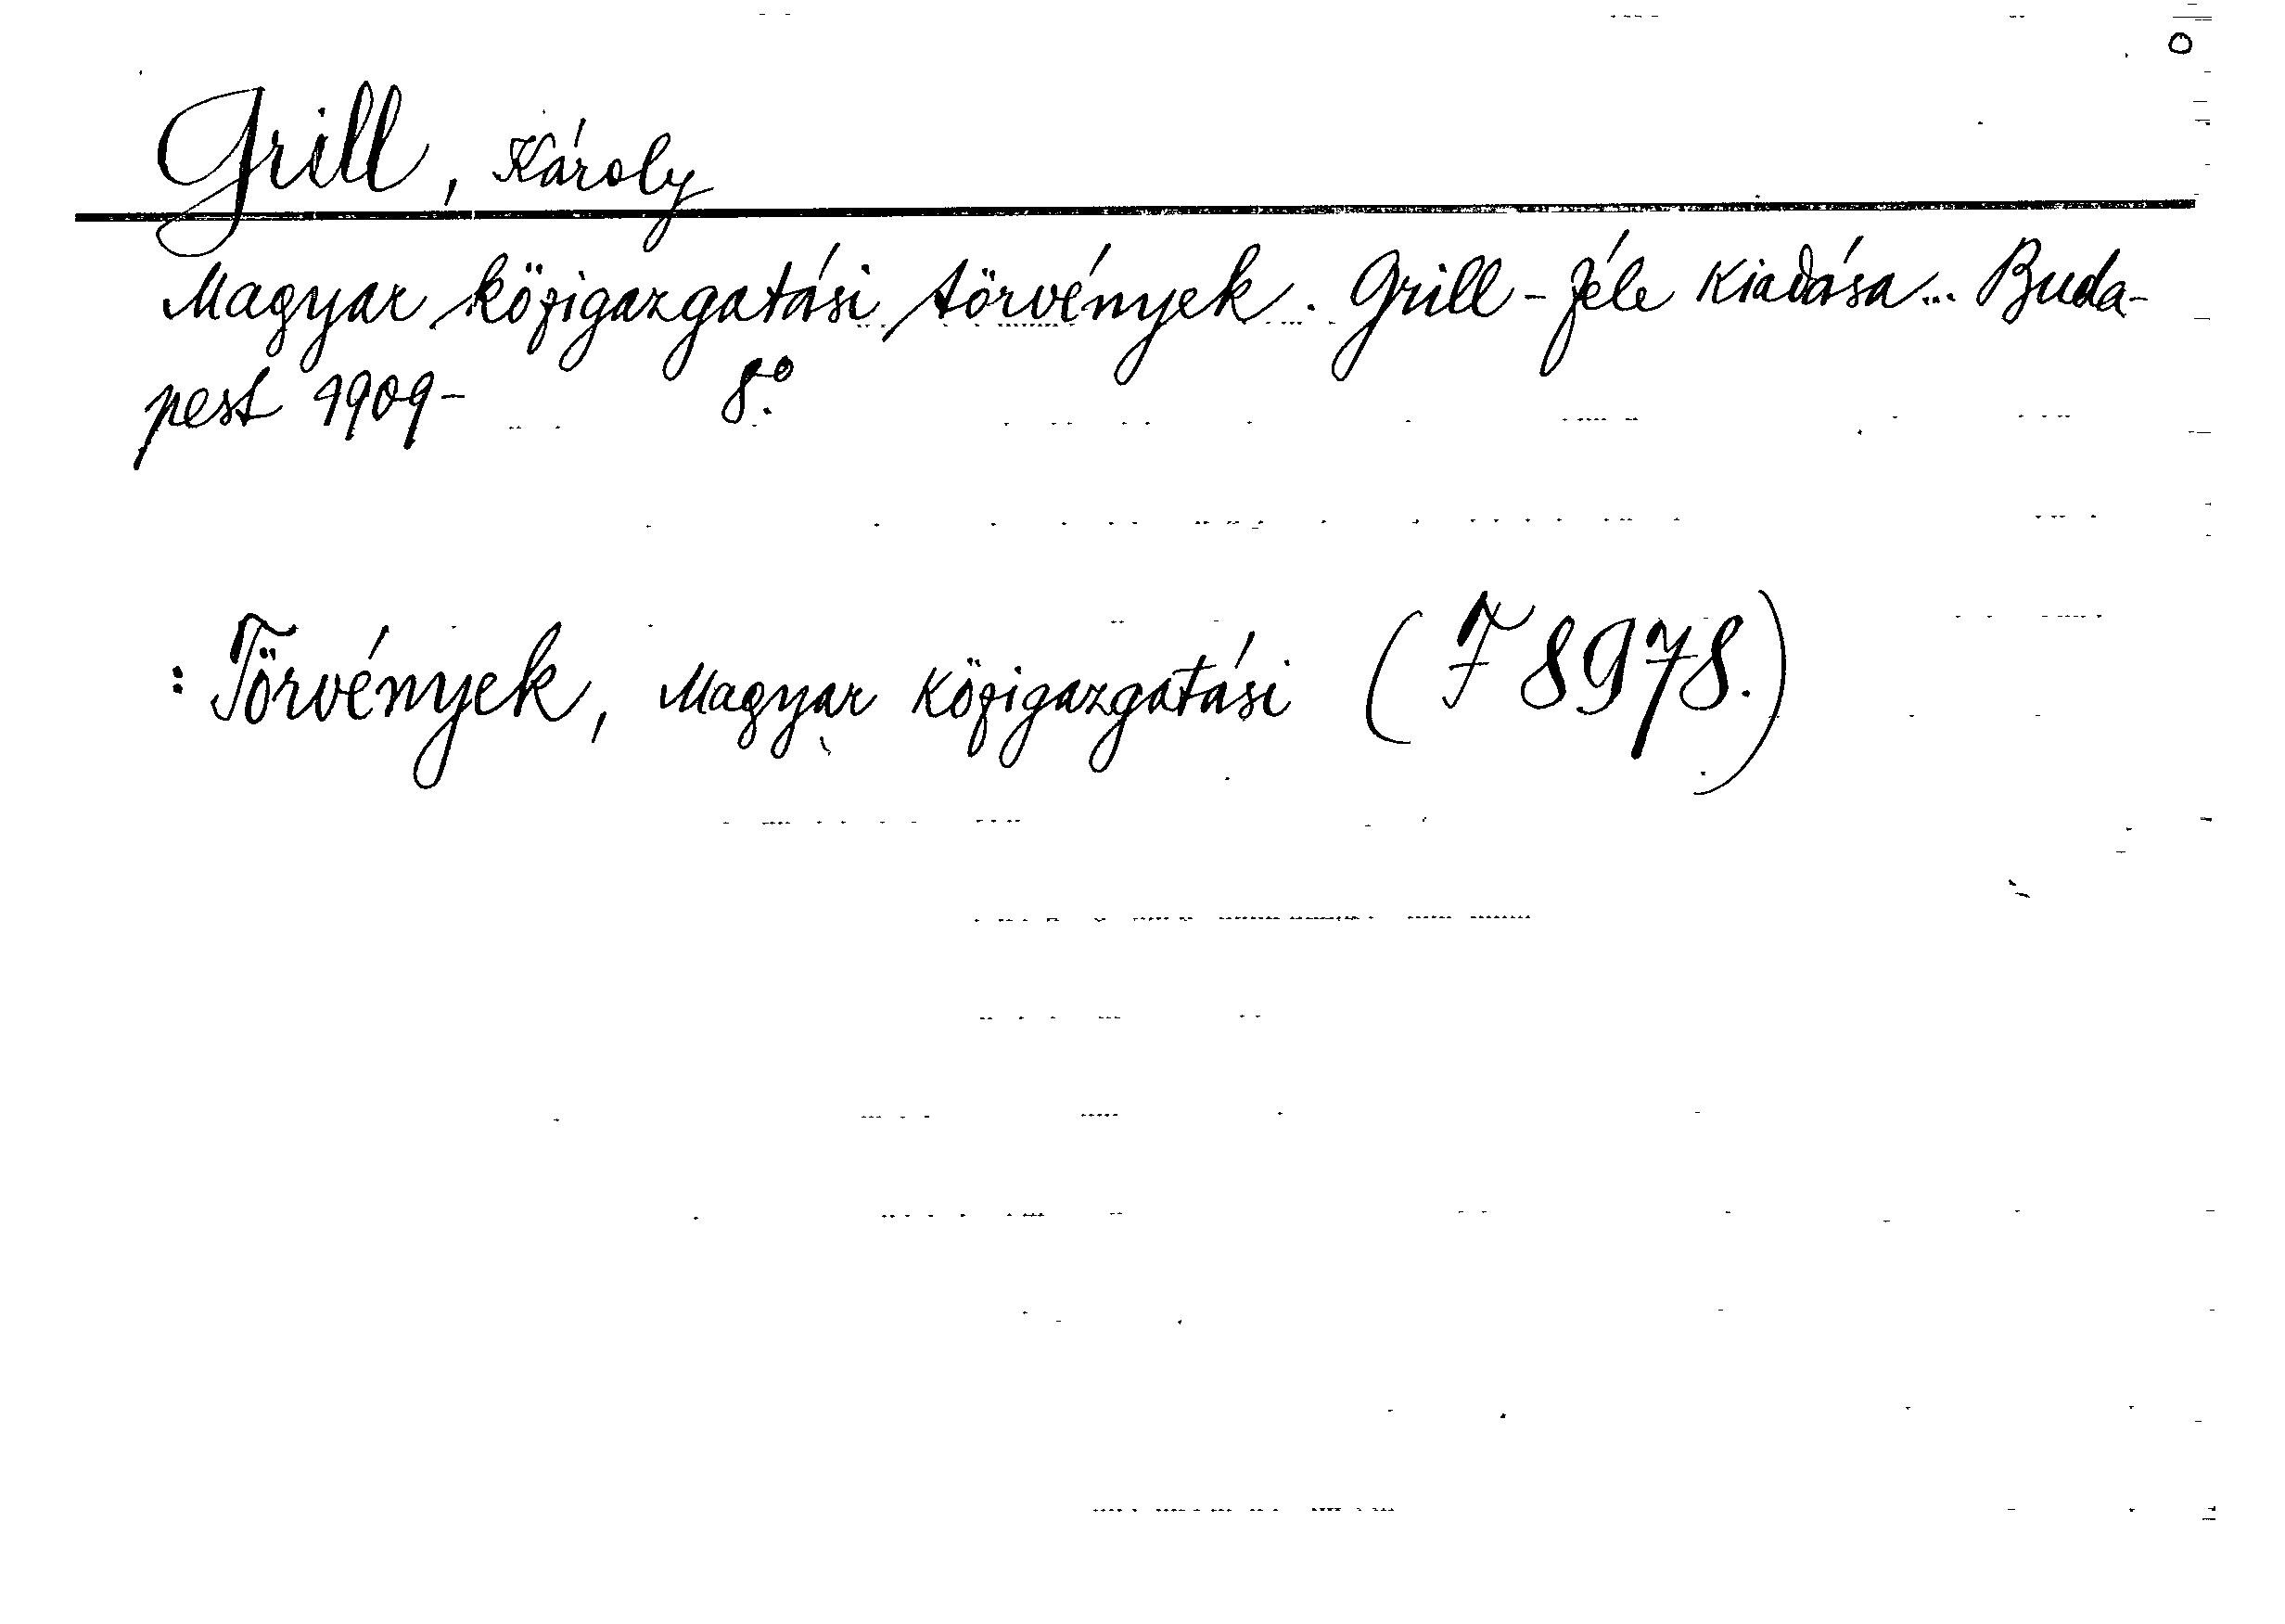 Grill, Károly
Magyar közigazgatási törvények. Grill-féle kiadása... Buda-
pest 1909- 8.º
: Törvények, Magyar közigazgatási (F 8978.)